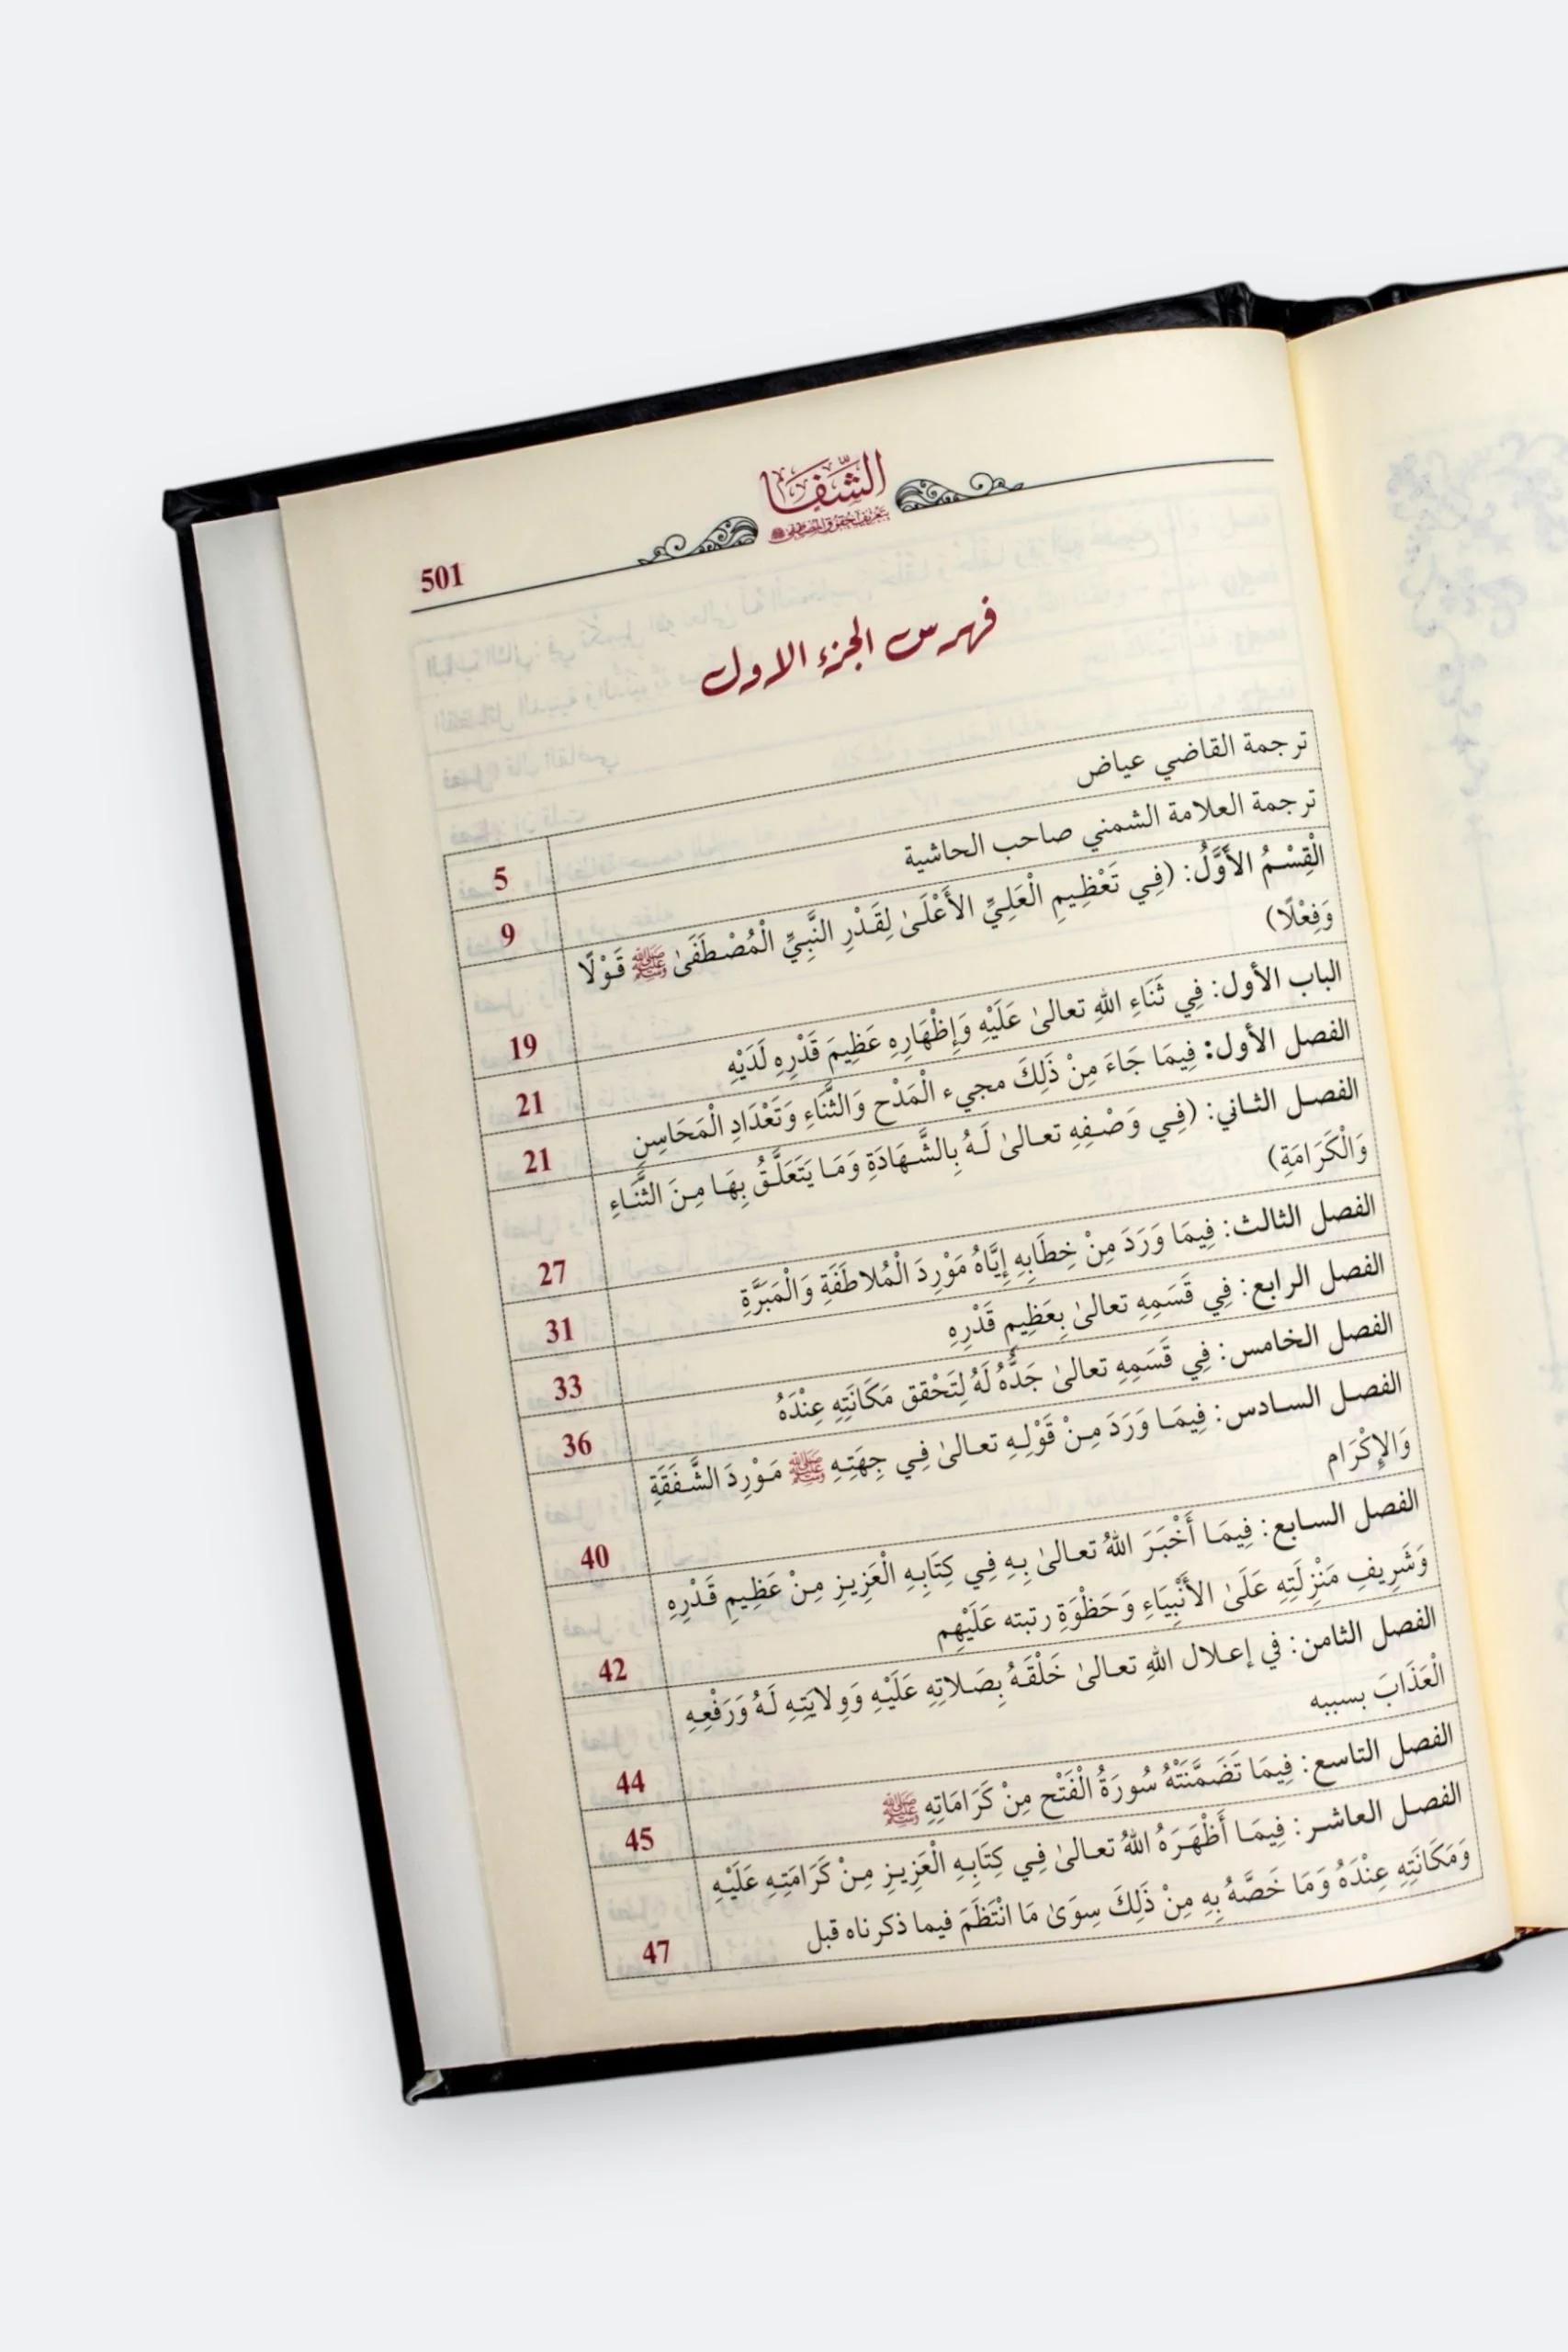 الشِّفَا
بتعريف حقوق المصطفى ﷺ
501
فهرس الجزء الاول
ترجمة القاضي عياض
5
ترجمة العلامة الشمني صاحب الحاشية
9
الْقِسْمُ الأَوَّلُ: (فِي تَعْظِيمِ الْعَلِيِّ الأَعْلَىٰ لِقَدْرِ النَّبِيِّ الْمُصْطَفَىٰ ﷺ قَوْلًا
وَفِعْلًا)
19
الباب الأول: فِي ثَنَاءِ اللهِ تعالىٰ عَلَيْهِ وَإِظْهَارِهِ عَظِيمَ قَدْرِهِ لَدَيْهِ
21
الفصل الأول: فِيمَا جَاءَ مِنْ ذَلِكَ مجيء الْمَدْحِ وَالثَّنَاءِ وَتَعْدَادِ الْمَحَاسِنِ
21
الفصل الثاني: (فِي وَصْفِهِ تعالىٰ لَهُ بِالشَّهَادَةِ وَمَا يَتَعَلَّقُ بِهَا مِنَ الثَّنَاءِ
وَالْكَرَامَةِ)
27
الفصل الثالث: فِيمَا وَرَدَ مِنْ خِطَابِهِ إِيَّاهُ مَوْرِدَ الْمُلاطَفَةِ وَالْمَبَرَّةِ
31
الفصل الرابع: فِي قَسَمِهِ تعالىٰ بِعَظِيمِ قَدْرِهِ
33
الفصل الخامس: فِي قَسَمِهِ تعالىٰ جَدُّهُ لَهُ لِتَحْقق مَكَانَتِهِ عِنْدَهُ
36
الفصل السادس: فِيمَا وَرَدَ مِنْ قَوْلِهِ تعالىٰ فِي جِهَتِهِ ﷺ مَوْرِدَ الشَّفَقَةِ
وَالإِكْرَام
40
الفصل السابع: فِيمَا أَخْبَرَ اللهُ تعالىٰ بِهِ فِي كِتَابِهِ الْعَزِيزِ مِنْ عَظِيمِ قَدْرِهِ
وَشَرِيفِ مَنْزِلَتِهِ عَلَىٰ الأَنْبِيَاءِ وَحَظْوَةِ رتبته عَلَيْهِم
42
الفصل الثامن: في إعلال اللهِ تعالىٰ خَلْقَهُ بِصَلاتِهِ عَلَيْهِ وَوِلايَتِهِ لَهُ وَرَفْعِهِ
الْعَذَابَ بسببه
44
الفصل التاسع: فِيمَا تَضَمَّنَتْهُ سُورَةُ الْفَتْحِ مِنْ كَرَامَاتِهِ ﷺ
45
الفصل العاشر: فِيمَا أَظْهَرَهُ اللهُ تعالىٰ فِي كِتَابِهِ الْعَزِيزِ مِنْ كَرَامَتِهِ عَلَيْهِ
وَمَكَانَتِهِ عِنْدَهُ وَمَا خَصَّهُ بِهِ مِنْ ذَلِكَ سِوَىٰ مَا انْتَظَمَ فيما ذكرناه قبل
47